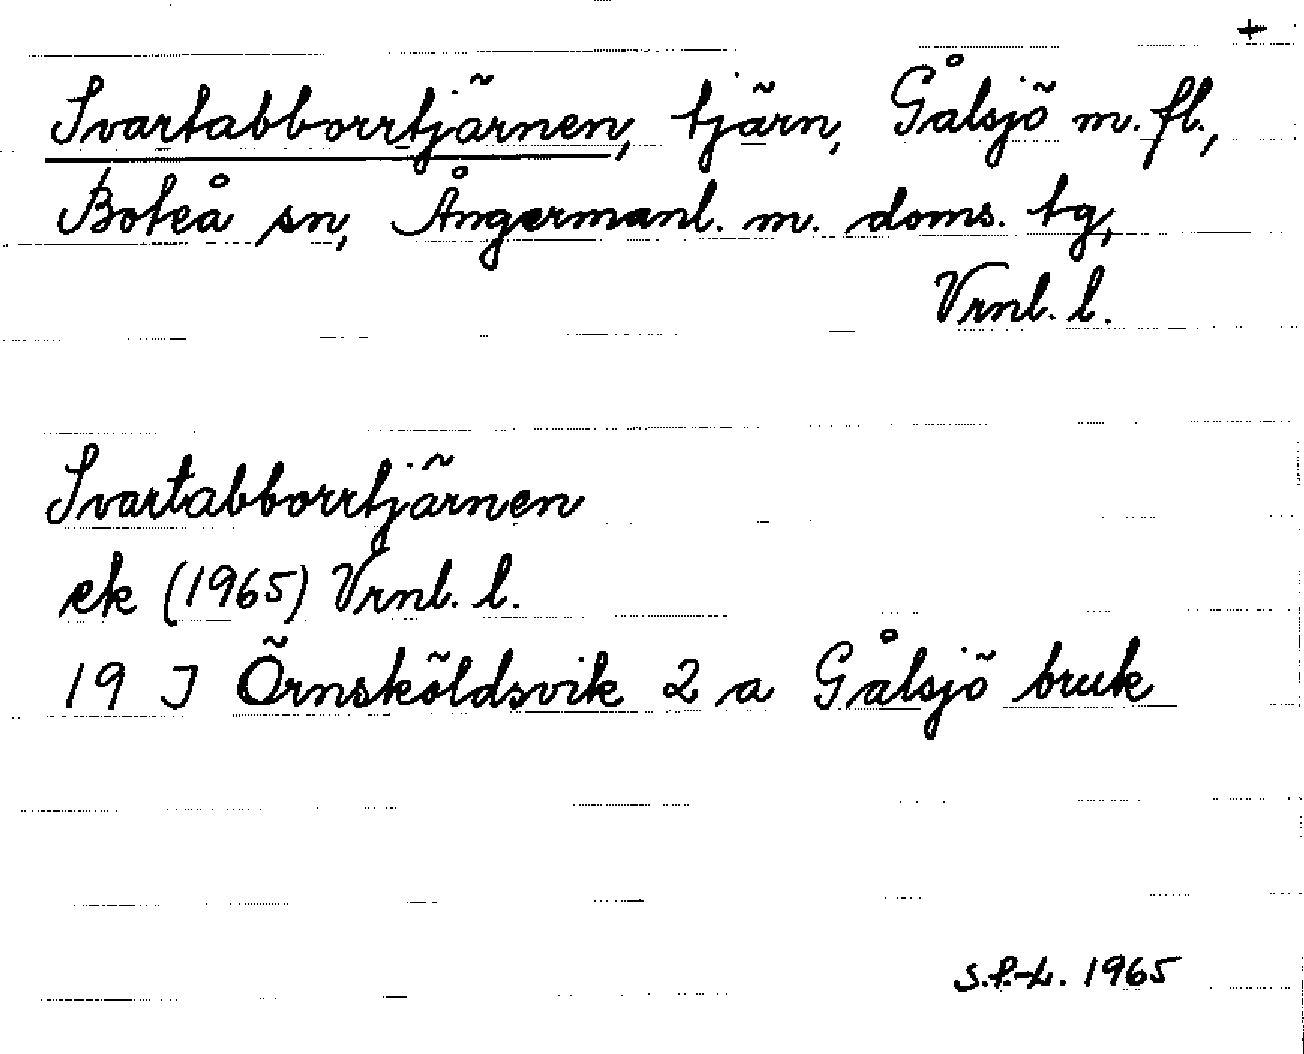 +
Svartabborrtjärnen, tjärn, Gålsjö m. fl.,
Boteå sn, Ångermanl. m. doms. tg,
Vrnl. l.
Svartabborrtjärnen
ek (1965) Vrnl. l.
19 J Örnsköldsvik 2 a Gålsjö bruk
S.P.-L. 1965